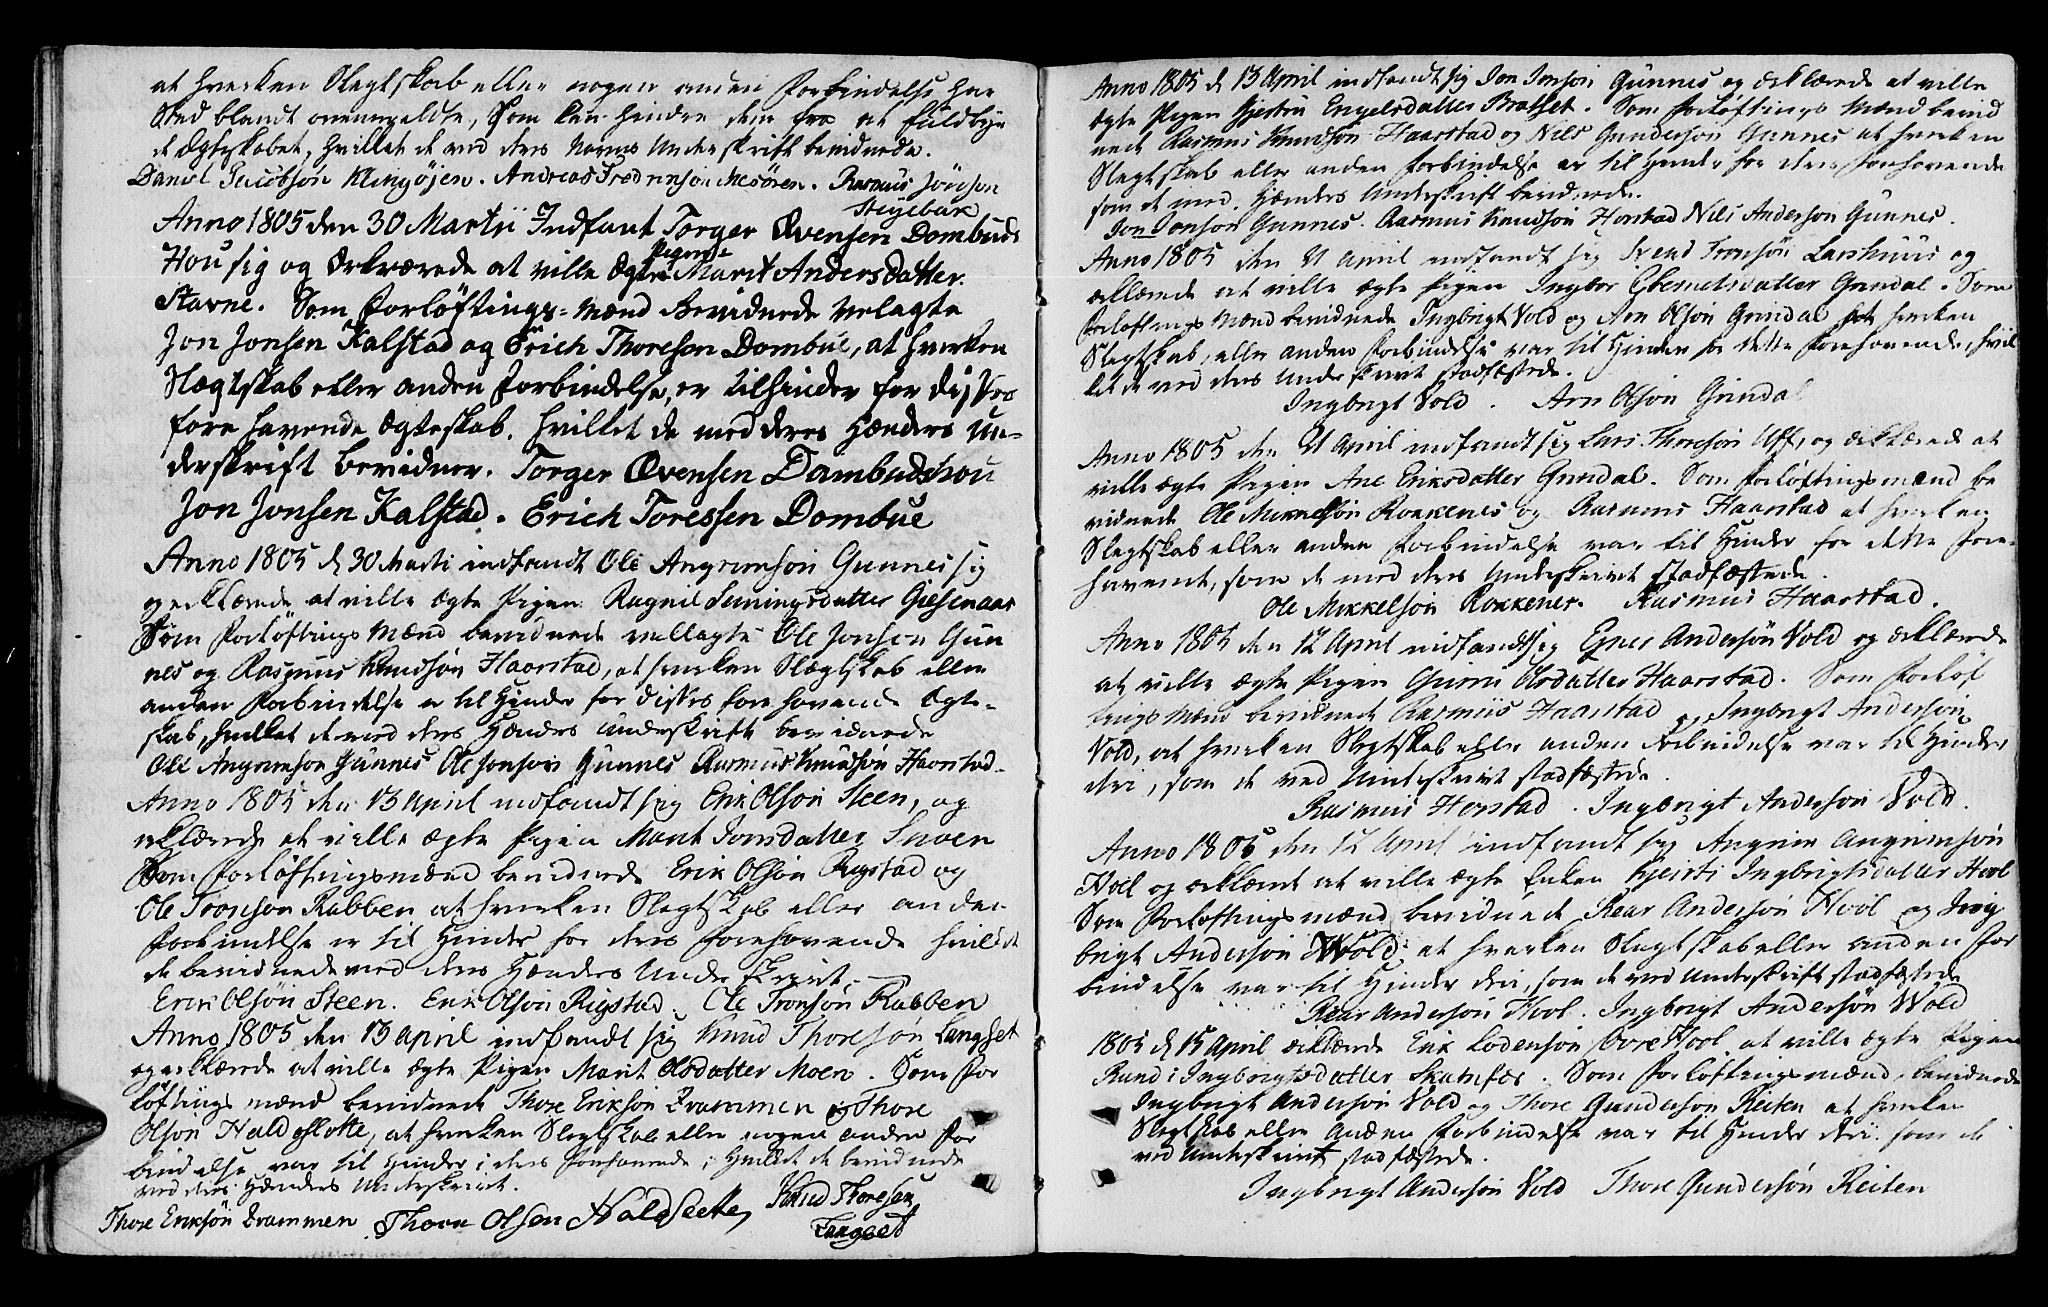 at hverken Slegtskab eller nogen anden Forbindelse har
Sted blandt ovenmeldte, som kan hindre dem fra at fuldbyr
de Ægteskabet, hvilket de med deres Navns Underskrift bevidnede.
Daniel Jacobson Klingøjen. Andreas Fredrikson Mesøren. Rasmus Jörgson
Steyebake
Anno 1805 den 30 Martii Indfant Torger Øvensen Dombuds
Hou sig og Erkværede at ville Ægte Pigen Marit Anders datter
Stavne. Som Forløftings-Mænd Bevidnede Velagte
Jon Jonsen Kalstad og Erich Thoresen Dombue, at hverken
Slægtskab eller anden Forbindelse, er til hinder for disses
fore havende Ægteskab. Hvilket de med deres Hænders Un-
derskrift bevidner. Torger Øvensen Dambudshou
Jon Jonsen Kalstad. Erich Toressen Dombue
Anno 1805 d 30 Marti indfandt Ole Angrimson Gunnes sig
og erklærede at ville ægte Pigen Ragnil Semingsdatter Giesenaas
Som Forløftings Mænd bevidnede vellagte Ole Jonsen Gun
nes og Rasmus Knudsøn Haarstad, at hverken Slægtskab eller
anden Forbindelse er til Hinder for disses fore havende Ægte-
skab, hvilket de med deres Hænders Underskrift bevidnede
Ole Angrimson Gunnes Ole Jonson Gunnes Rasmus Knudsøn Haarstad.
Anno 1805 den 13 April indfandt sig Erik Olson Steen, og
erklærede at ville ægte Pigen Marit Jonsdatter Snoen
Som Forløftingsmænd bevidnede Erik Olsøn Rigstad og
Ole Tronson Rabben at hverken Slegtskab eller anden
Forbindelse er til Hinder for deres Forehavende hvilket
de bevidnede med deres Hænders Underskrivt.
Erik Olsøn Steen. Erik Olson Rigstad. Ole Tronsøn Rabben
Anno 1805 den 13 April indfandt sig Knud Thoreson Langset
og erklærede at ville ægte Pigen Marit Olsdatter Moen. Som For
løftings mænd bevidnede Thore Erikson Drammen og Thore
Olson Haldoslette, at hverken Slegtskab eller nogen anden For
bindelse var til Hinder i deres Forehavende; Hvilket de bevidnede
med deres Hænders Underskrivt.
Thore Eriksøn Drammen Thore Olsen Haldslette Knud Thoresen
Langset
Anno 1805 d 13 April indfandt sig Jon Jonson Gunnes og erklærede at ville
ægte Pigen Kjersti Engelsdatter Bratset. Som Forløftings Mænd bevid
nede Rasmus Knudson Haarstad og Nils Gunderson Gunnes at hverken
Slegtskab eller anden Forbindelse er til Hinder for deres Forehavende
som de med Hænders Underskrift bevidnede.
Jon Jonson Gunnes. Rasmus Knudsøn Horstad Nils Anderson Gunnes.
Anno 1805 den 21 April indfandt sig Svend Tronsøn Larshuus og
erklærede at ville ægte Pigen Ingbor Estensdatter Grindal. Som
Forløftings Mænd bevidnede Ingbrigt Vold og Arn Olson Grindal at hverken
Slegtskab, eller anden Forbindelse var til Hinder for dette Forehavende, hvil
ket de med deres Underskrivt stadfæstede.
Ingbrigt Vold. Arn Olson Grindal
Anno 1805 den 21 April indfandt sig Lars Thoresøn Uff, og erklærede at
ville ægte Pigen Ane Eriksdatter Grindal. Som Forløftingsmænd be
vidnede Ole Mikkelsøn Rokkenes og Rasmus Haarstad at hverken
Slegtskab eller anden Forbindelse var til Hinder for dette Fore-
havende, som de med deres Underskrivt stadfæstede.
Ole Mikkelsøn Rokkenes. Rasmus Haarstad.
Anno 1805 den 12 April indfandt sig Egner Andersøn Vold og erklærede
at ville ægte Pigen Gurru Olsdatter Haarstad. Som Forløf
tings Mænd bevidnede Rasmus Haarstad, Ingbrigt Anderson
Vold, at hverken Slegtskab eller anden Forbindelse var til Hinder
deri, som de ved Underskrivt stadfæstede.
Rasmus Horstad. Ingbrigt Anderson Vold.
Anno 1805 den 12 April indfandt sig Angrim Angrimsøn
Hoel og erklærede at ville ægte Enken Kjersti Ingbrigtsdatter Hoel
Som Forløftingsmænd bevidnede Roar Andersøn Hool og Ing
brigt Anderson Wold; at hverken Slegtskab eller anden For
bindelse var til Hinder deri, som de ved Underskrift stadfæstede
Roar Anderson Hool. Ingbrigt Andersøn Wold
1805 d 15 April erklærede Erik Lodenson Øvre Hool at ville ægte Pigen
Randi Ingbrigtsdatter Skamfær. Som Forløftingsmænd bevidnede
Ingbrigt Anderson Vold og Thore Gunderson Reiten at hverken
Slegtskab eller Anden Forbindelse var til Hinder deri som de
ved Underskrivt stadfæstede.
Ingbrigt Andersøn Vold Thore Gundersøn Reiten